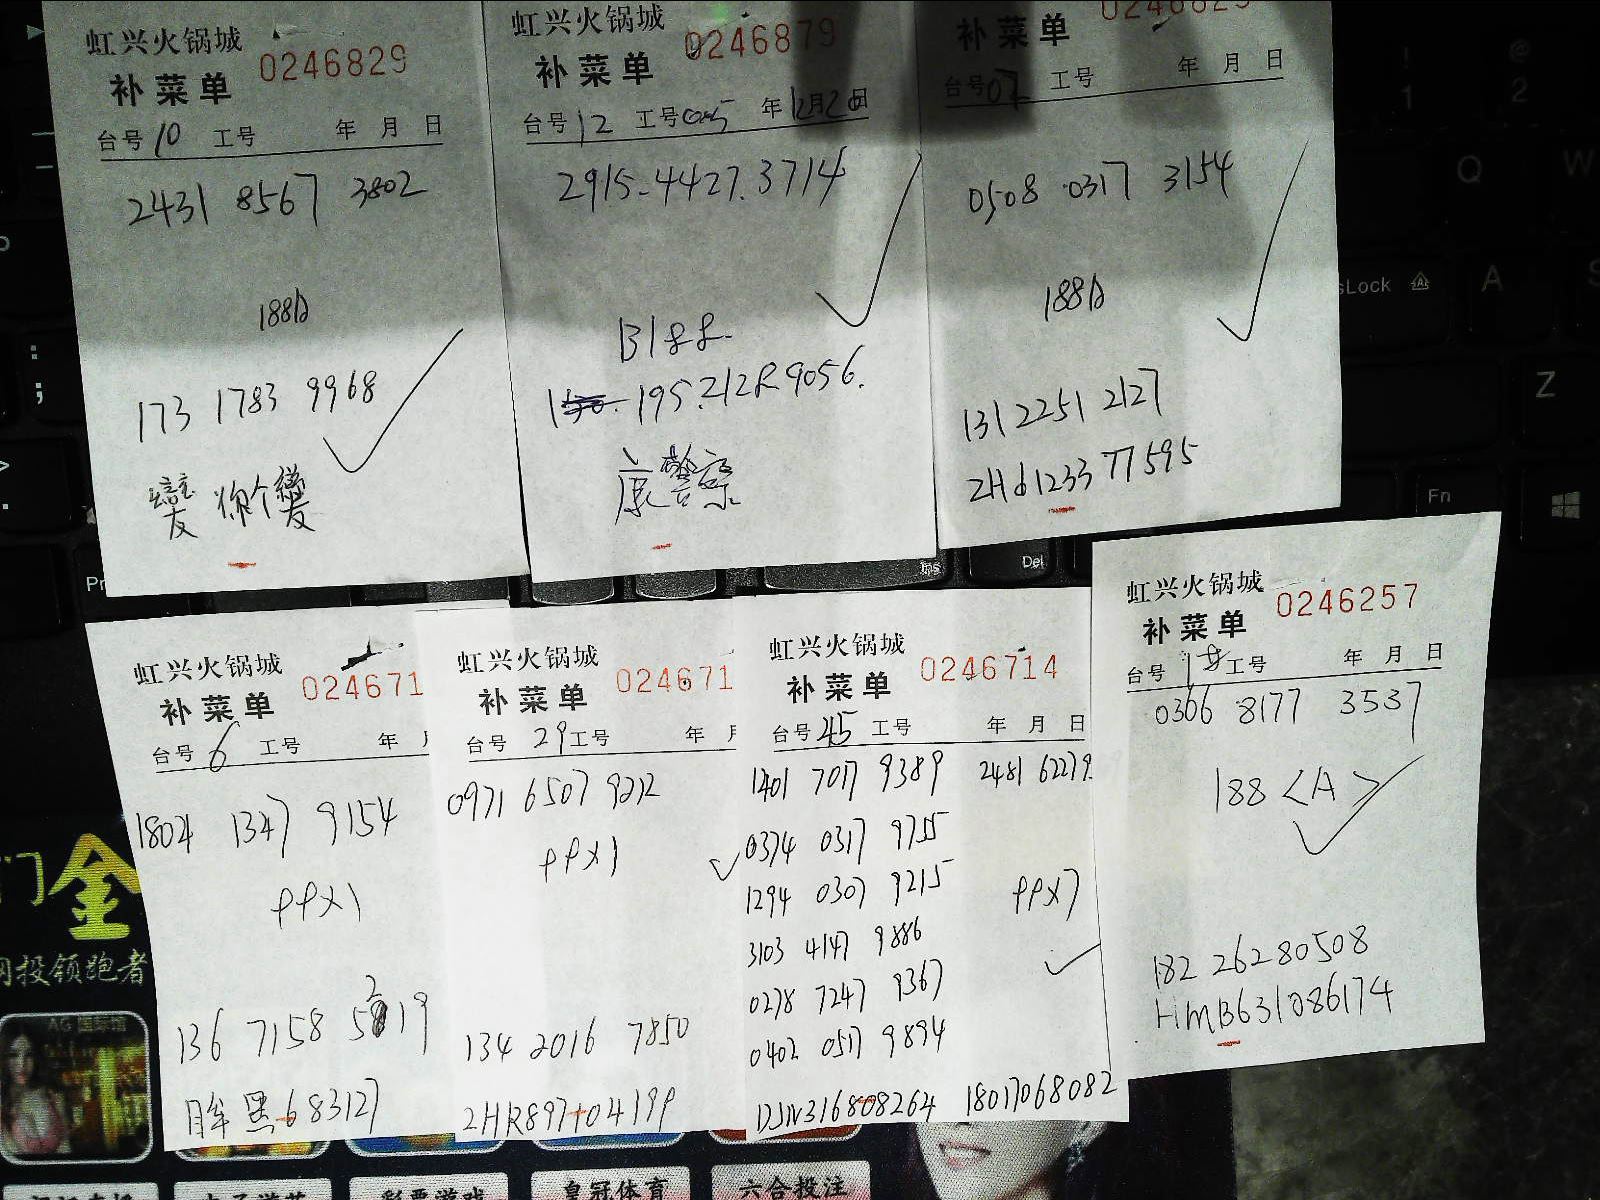 虹兴火锅城
补菜单 0246829
台号10 工号 年 月 日
2431 8567 3802
188A
173 1783 9968
虹兴火锅城
补菜单 0246879
台号12 工号025 年12月2日
2915-4427.3714
B188
195.212R9056.
康警察
补菜单
台号07 工号 年 月 日
0508 0317 3154
188A
131 2251 2127
2Hd1233 77595
虹兴火锅城
补菜单 024671
台号6 工号 年
1804 1347 9154
PPX1
136 7158 5219
眸黑683127
虹兴火锅城
补菜单 024671
台号 29 工号 年
0971 6507 9212
PPX1
134 2016 7850
2HR897704199
虹兴火锅城
补菜单 0246714
台号45 工号 年 月 日
1401 7017 9389 2481 62279
0374 0317 9755
1294 0307 9215
PPX7
3103 4147 9886
0278 7247 9367
0402 0517 9894
DJN316808264 18017068082
虹兴火锅城
补菜单 0246257
台号 18 工号 年 月 日
0366 8177 3537
188<A>
182 26280508
HMB631086174
Q
W
A
Z
Fn
Ins
Del
门金
网投领跑者
皇冠体育
六合投注